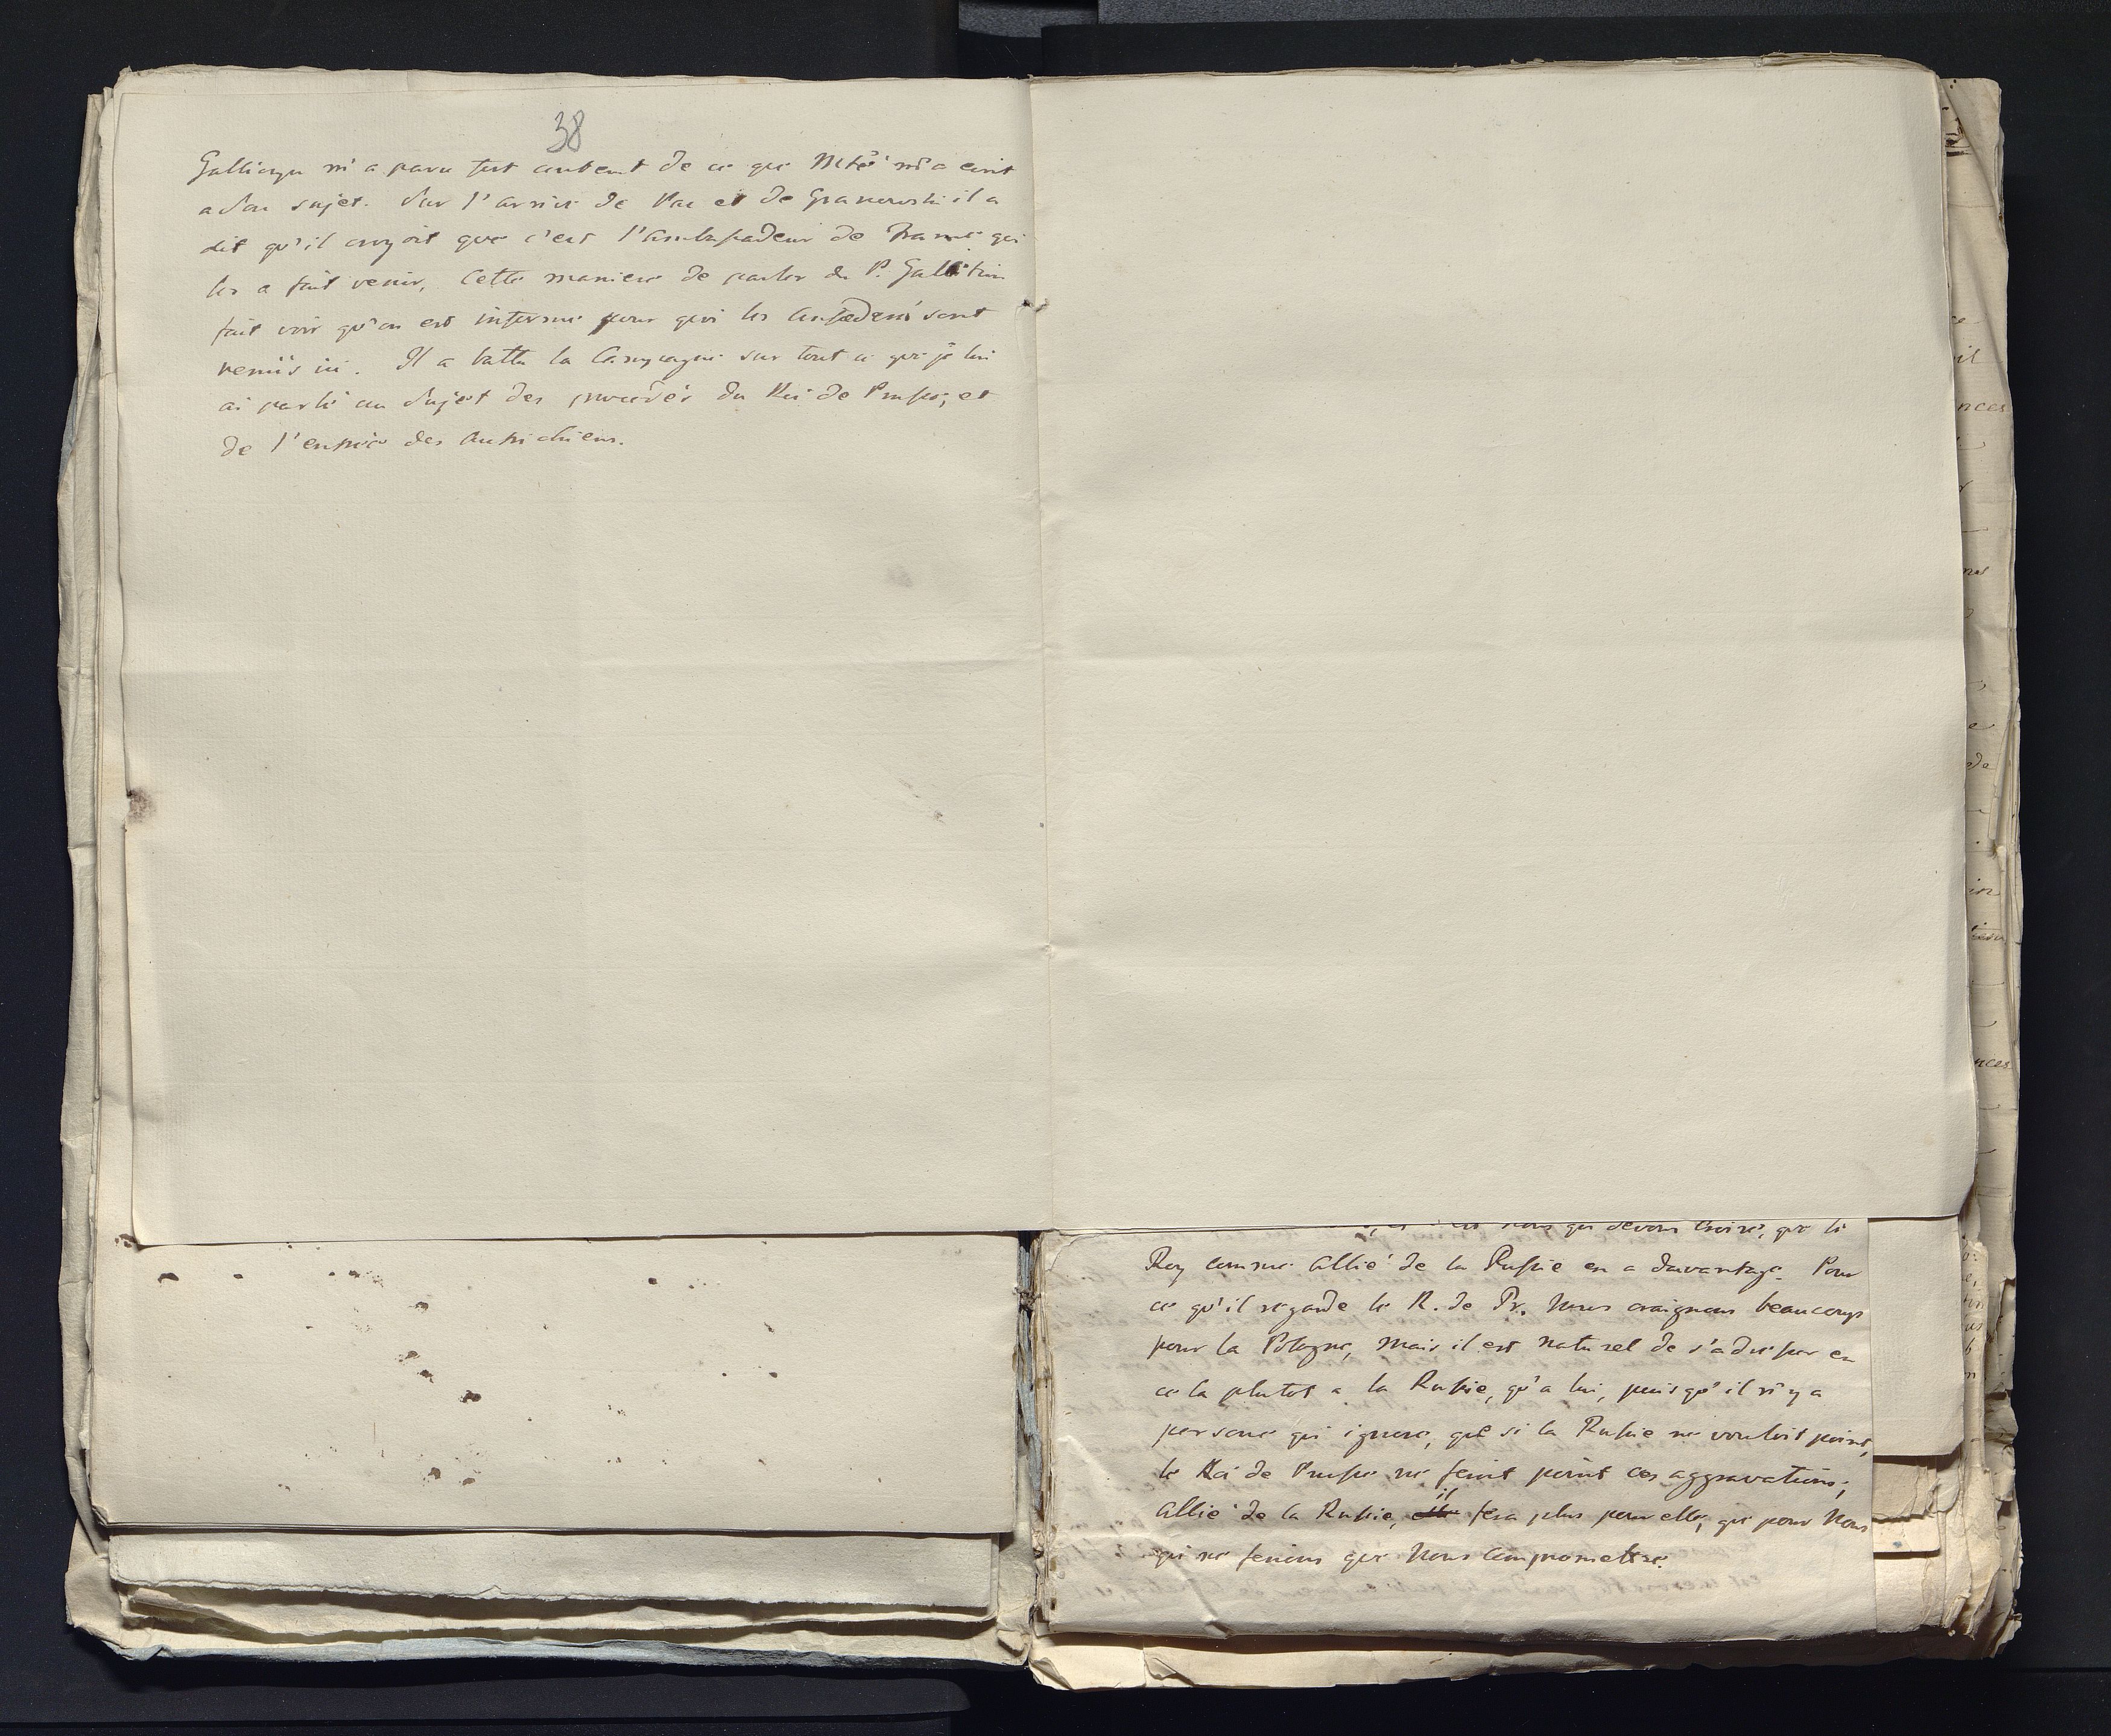 38
Galliczyn m'a paru fort content de ce que Mté m'a ecrit
a son sujet. Sur l'arrivé de Pac et de Granowski il a
dit qu'il croyoit que c'est l'Ambassadeur de France qui
les a fait venir, Cette maniere de parler du P. Gallitzin
fait voir qu'on est informé pour quoi les Confœderés sont
venus ici. Il a battu la Campagne sur tout ce que je lui
ai parlé au sujet des procedés du Roi de Prusse, et
de l'entrée des Autrichiens.
nous qui devons croire, que le
Roy comme Allié de la Russie en a davantage. Pour
ce qu'il regarde le R. de Pr. Nous craignons beaucoup
pour la Pologne, mais il est naturel de s'adresser en
ce la plutot a la Russie, qu'a lui, puisqu'il n'y a
persone qui ignore, que si la Russie ne vouloit point,
le Roi de Prusse ne feroit point ces aggravations;
Allié de la Russie, il fera plus pour elle, que pour Nous
qui ne ferions que Nous compromettre.